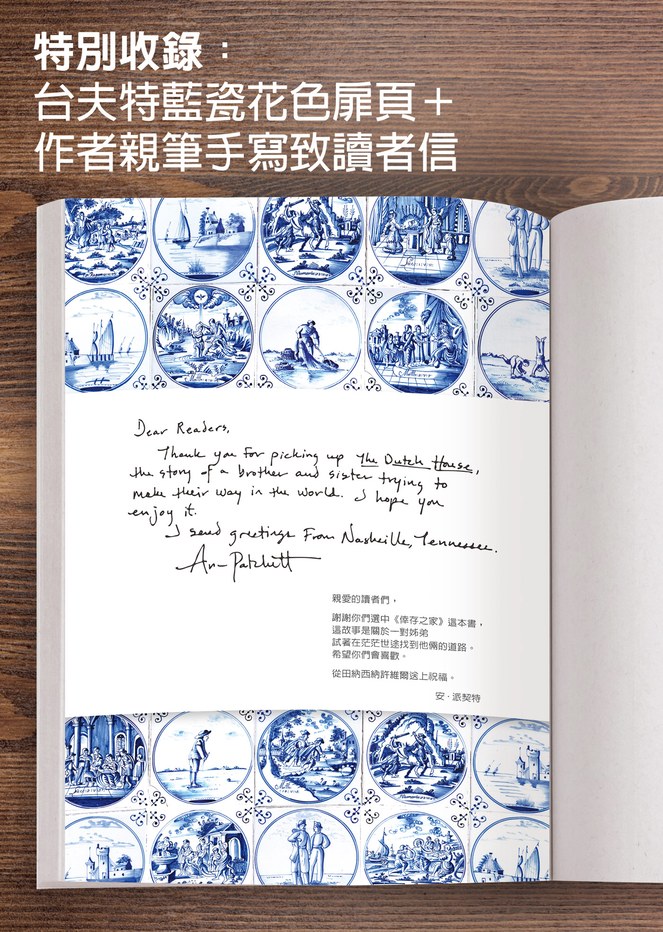 特別收錄：
台夫特藍瓷花色扉頁＋
作者親筆手寫致讀者信
Dear Readers,
Thank you for picking up The Dutch House,
the story of a brother and sister trying to
make their way in the world. I hope you
enjoy it.
I send greetings From Nashville, Tennessee.
Ann Patchett
親愛的讀者們，
謝謝你們選中《倖存之家》這本書，
這故事是關於一對姊弟
試著在茫茫世途找到他倆的道路。
希望你們會喜歡。
從田納西納許維爾送上祝福。
安・派契特